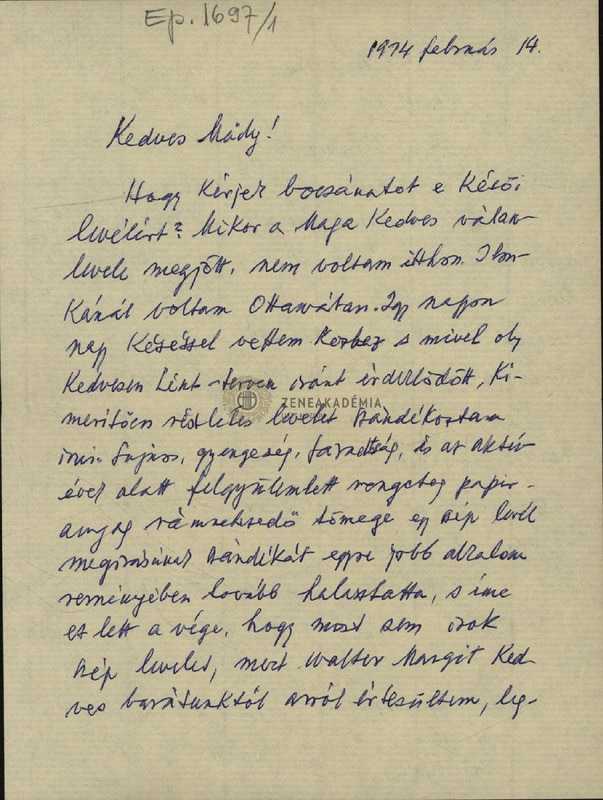 Ep. 1697/1
1974 február 14.
Kedves Mády!
Hogy kérjek bocsánatot e késői
levélért? Mikor a Maga kedves válasz-
levele megjött, nem voltam itthon. Ilon-
kánál voltam Ottawában. Így napon
nap késéssel vettem kézhez s mivel oly
kedvesen Liszt-tervem iránt érdeklődött, ki-
merítően részletes levelet szándékoztam
írni. Sajnos, gyengeség, fáradtság, és az aktív
ZENEAKADÉMIA
évek alatt felgyülemlett rengeteg papir-
anyag rámnehezedő tömege egy szép levél
megírásának szándékát egyre jobb alkalom
reményében tovább halasztatta, s íme
ez lett a vége, hogy most sem írok
szép levelet, mert Walter Margit ked-
ves barátunktól arról értesültem, leg-